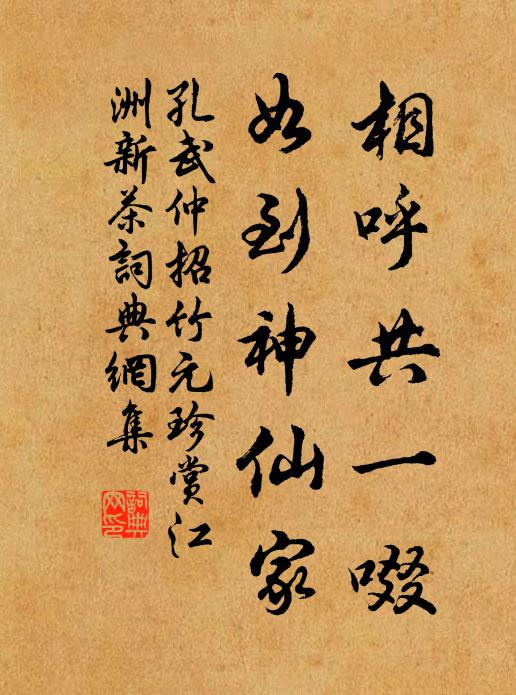 相呼共一啜
如到神仙家
孔武仲招竹元珍赏江
洲新茶词典網集
詞典
网印